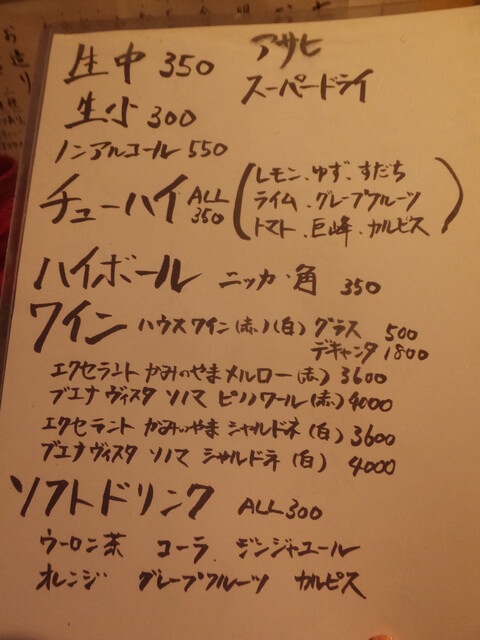 生中 350 アサヒ
スーパードライ
生小 300
ノンアルコール 550
チューハイ ALL 350 (レモン、ゆず、すだち
ライム、グレープフルーツ
トマト、巨峰、カルピス)
ハイボール ニッカ・角 350
ワイン ハウスワイン(赤)(白) グラス 500
デキャンタ 1800
エクセラント かみのやま メルロー(赤) 3600
ブエナ ヴィスタ ソノマ ピノノワール(赤) 4000
エクセラント かみのやま シャルドネ(白) 3600
ブエナ ヴィスタ ソノマ シャルドネ(白) 4000
ソフトドリンク ALL 300
ウーロン茶 コーラ ジンジャエール
オレンジ グレープフルーツ カルピス